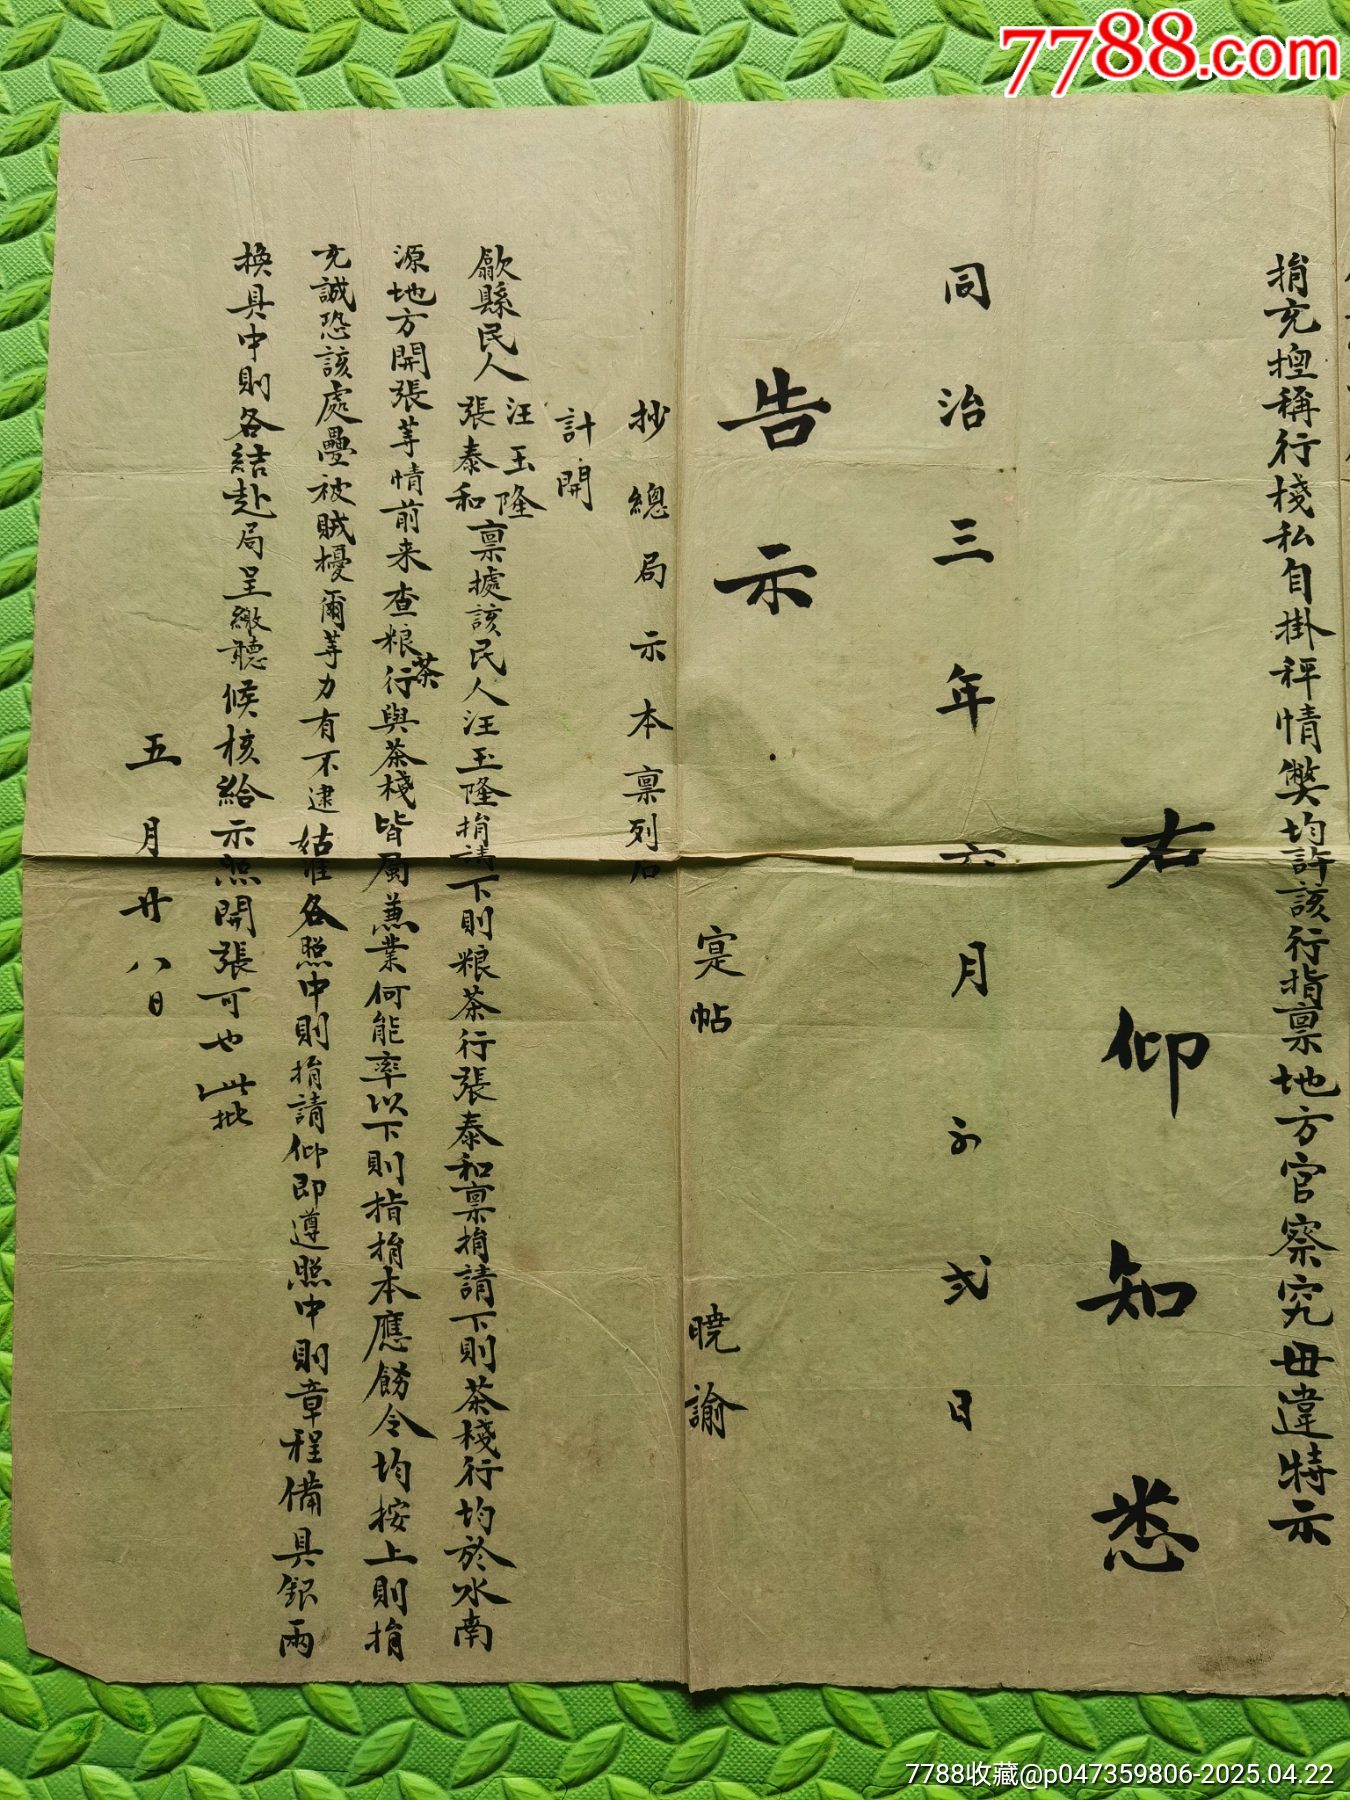 7788.com
捐充擅稱行棧私自掛秤情弊均許該行指禀地方官察究毋違特示
右仰知悉
同治三年六月初弍日
告示
寔帖 曉諭
抄總局示本禀列后
計開
歙縣民人汪玉隆張泰和禀據該民人汪玉隆捐請下則粮茶行張泰和禀捐請下則茶棧行均於水南
源地方開張等情前来查粮茶行與茶棧皆属兼業何能率以下則指捐本應飭令均按上則捐
充誠恐該處疊被贼擾爾等力有不逮姑准各照中則捐請仰即遵照中則章程備具銀兩
換具中則各結赴局呈繳聽候核給示照開張可也此批
五月廿八日
7788收藏@p047359806-2025.04.22